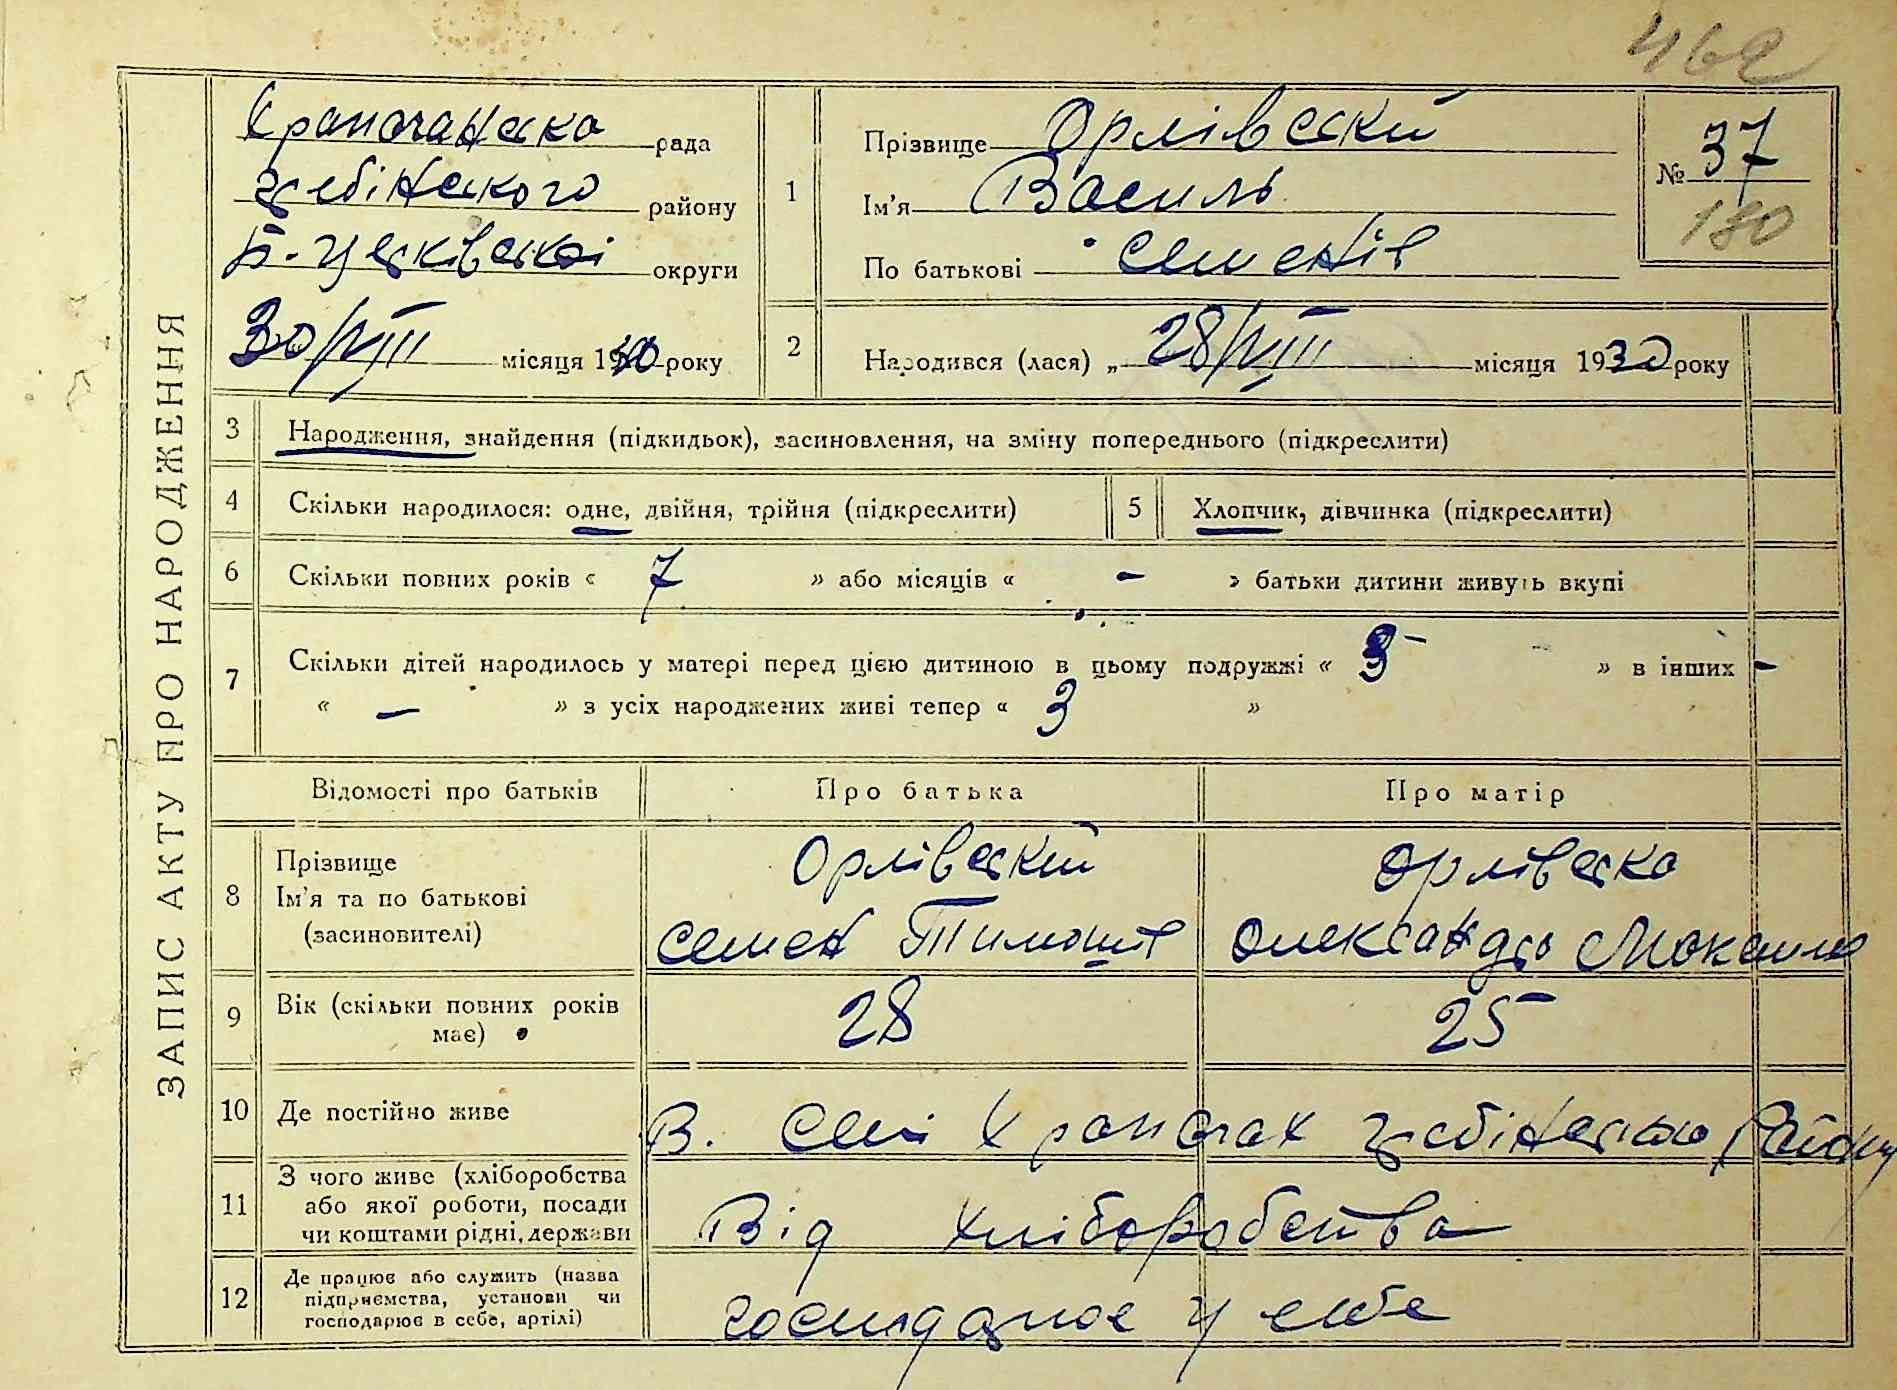 ЗАПИС АКТУ ПРО НАРОДЖЕННЯ
Храпачанська рада
Б-Церківської округи
30/VIII місяця 1930 року
1
Прізвище Орлівський
Ім'я Василь
По батькові Семенів
№ 37
180
2
Народився (лася) „ 28/VIII місяця 1930 року
3 Народження, знайдення (підкидьок), засиновлення, на зміну попереднього (підкреслити)
4 Скільки народилося: одне, двійня, трійня (підкреслити) 5 Хлопчик, дівчинка (підкреслити)
6 Скільки повних років « 7 » або місяців « - » батьки дитини живуть вкупі
7 Скільки дітей народилось у матері перед цією дитиною в цьому подружжі « 3 » в інших -
« — » з усіх народжених живі тепер « 3 »
Відомості про батьків Про батька Про матір
8 Прізвище
Ім'я та по батькові
(засиновителі)
Орлівський
Семен Тимошів
Орлівська
Олександра
9 Вік (скільки повних років
має)
28 25
10 Де постійно живе
В. селі Храпачах району
11 З чого живе (хліборобства
або якої роботи, посади
чи коштами рідні, держави
Від хліборобства
12 Де працює або служить (назва
підприємства, установи чи
господарює в себе, артілі)
господарює у себе